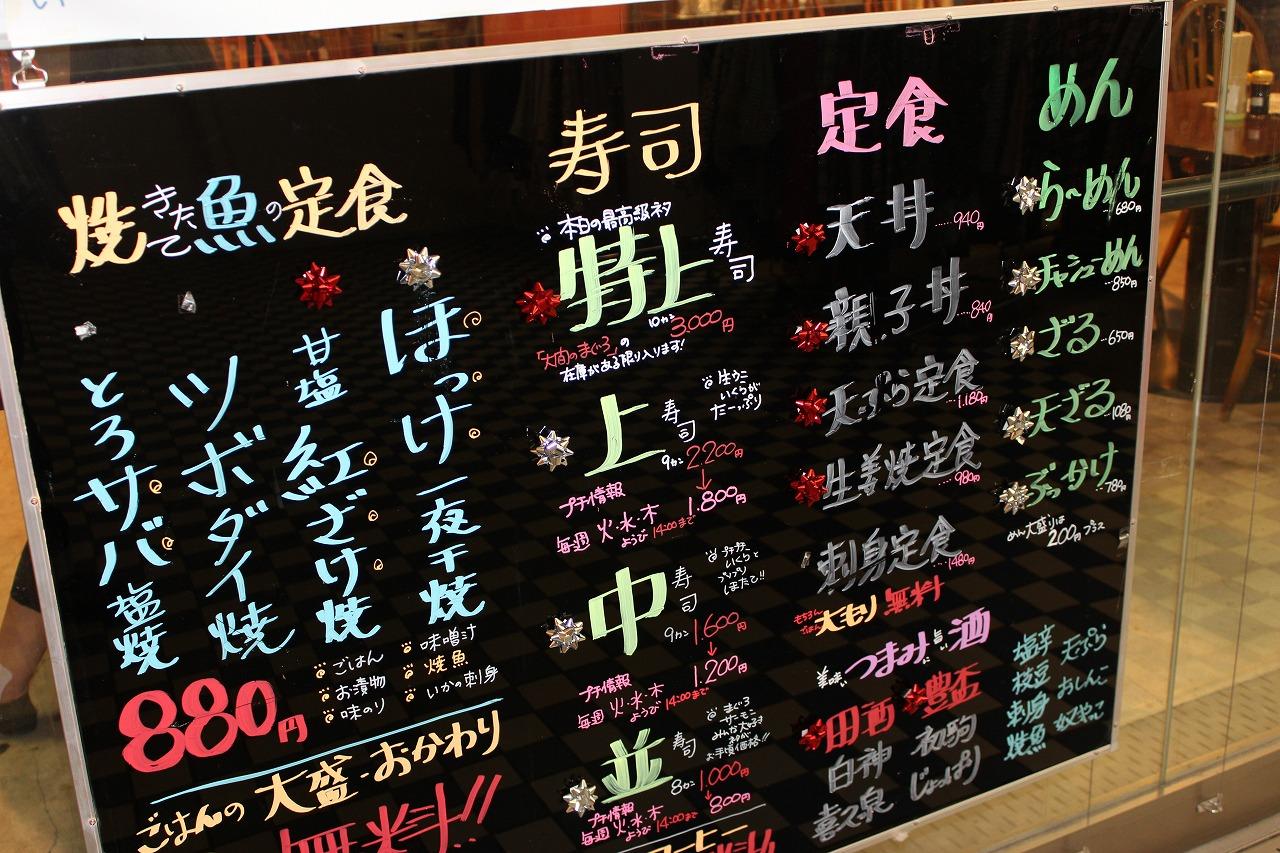 焼きたて魚の定食
ほっけ一夜干焼
甘塩紅ざけ焼
ツボダイ焼
とろサバ塩焼
880円
ごはん
お漬物
味のり
味噌汁
焼魚
いかの刺身
ごはんの大盛・おかわり
無料!!
寿司
本日の最高級ネタ
特上寿司
10カン 3,000円
「大間のまぐろ」の
在庫がある限り入ります!
上寿司
生ウニ
いくらが
たーっぷり
9カン 2,200円
↓
1,800円
プチ情報
毎週火・水・木ようび14:00まで
中寿司
プチプチ
いくらと
プリプリ
ほたて!!
9カン 1,600円
↓
1,200円
プチ情報
毎週火・水・木ようび14:00まで
並寿司
まぐろ
サーモン
みんな大好き
ネタが
お手頃価格!!
8カン 1,000円
↓
800円
プチ情報
毎週火・水・木ようび14:00まで
定食
天丼……940円
親子丼……840円
天ぷら定食…1,180円
生姜焼定食…980円
刺身定食…1480円
もちろんごはん大もり無料
美味いつまみに旨い酒
田酒
豊盃
白神
初駒
喜久泉
じょっぱり
塩辛
天ぷら
枝豆
おしんこ
刺身
焼魚
めん
らーめん…680円
チャシューめん…850円
ざる…650円
天ざる…1080円
ぶっかけ…780円
めん大盛りは
200円プラス